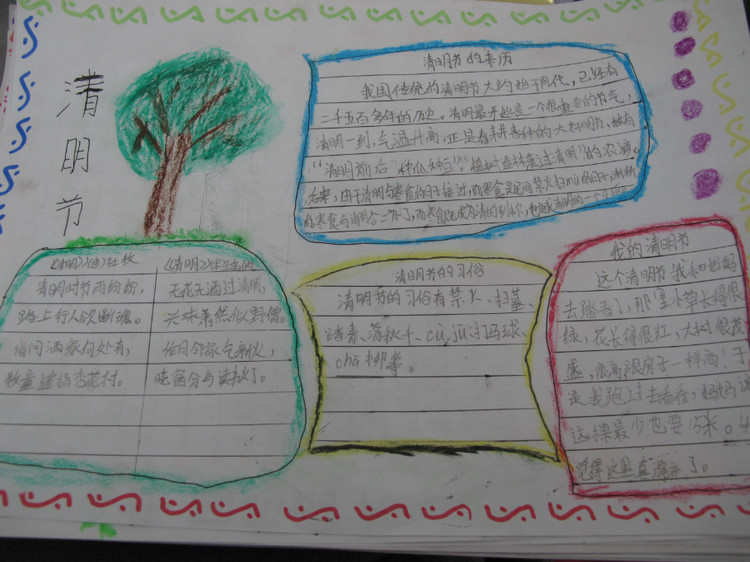 清明节
清明节的来历
我国传统的清明节大约始于周代，已经有
二千五百多年的历史。清明最开始是一个很重要的节气，
清明一到，气温升高，正是春耕春种的大好时节，故有
“清明前后，种瓜种豆”。“植树造林莫过清明”的农谚。
后来，由于清明与寒食的日子接近，而寒食是民间禁火扫墓的日子，渐渐的
《清明》(唐)杜牧
清明时节雨纷纷，
路上行人欲断魂。
借问酒家何处有，
牧童遥指杏花村。
《清明》
无花无酒过清明，
兴味萧然似野僧。
昨日邻家乞新火，
晓窗分与读书灯。
清明节的习俗
清明节的习俗有禁火、扫墓、
踏青、荡秋千、cù jū、打马球、
chā柳等。
我的清明节
这个清明节我和妈妈
去踏青了，那里小草长得很
绿，花长得很红，大树很茂
盛，很高跟房子一样高！于
是我跑过去看看，妈妈说
这棵最少也要15米。